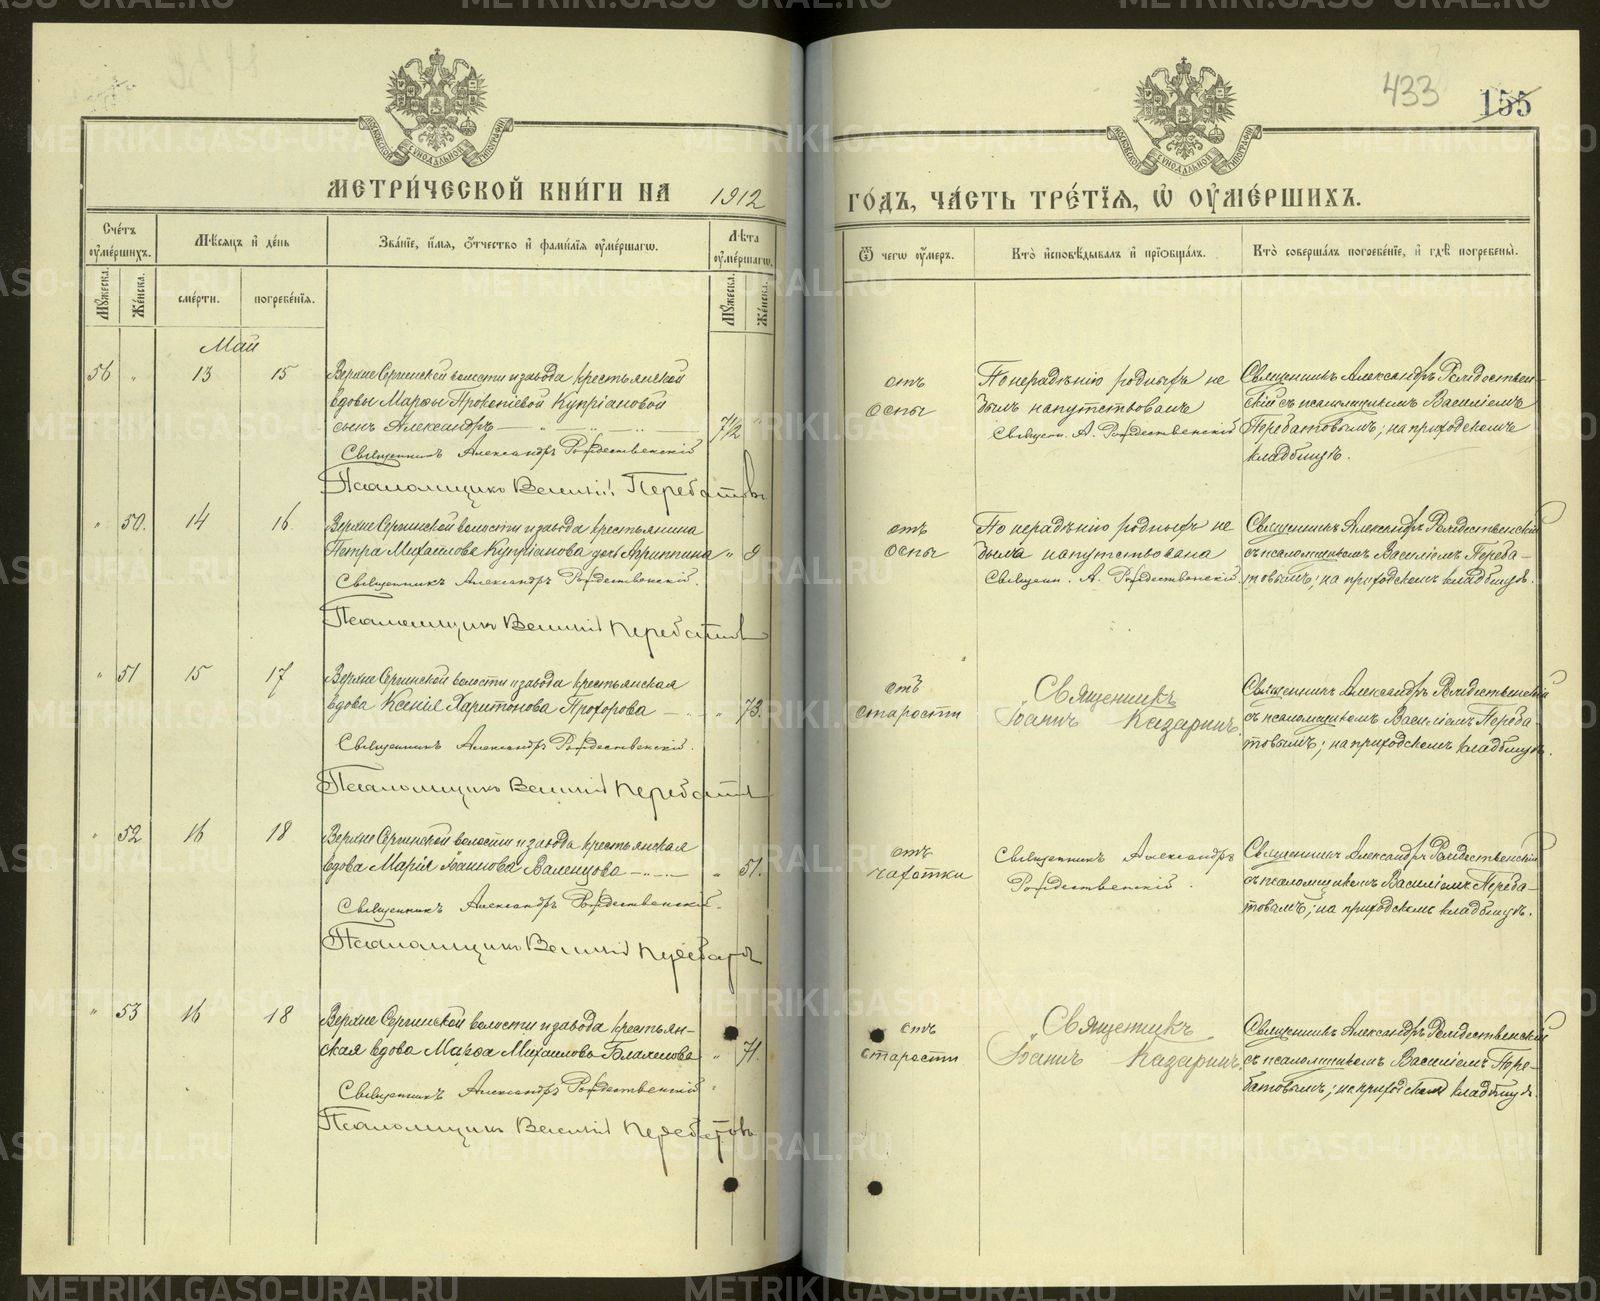 433
155
МЕТРИ́ЧЕСКОЙ КНИ́ГИ НА 1912 ГО́ДЪ, ЧА́СТЬ ТРЕ́ТІѦ, Ѡ ОУМЕ́РШИХЪ.
Сче́тъ оуме́ршихъ.
Мѣсѧцъ и де́нь
Зва́ніе, и́мѧ, о́тчество и фами́лїѧ оуме́ршагѡ.
Лѣта оуме́ршагѡ.
Ѿ чегѡ оу́меръ.
Кто̀ исповѣ́дывалъ и прїѡбща́лъ.
Кто̀ соверша́лъ погребе́нїе, и гдѣ̀ погребены̀.
Мꙋ́жеска.
Же́нска.
сме́рти.
погребе́нїѧ.
Мꙋ́жеска.
Же́нска.
Май
56 " 13 15
Верхне Сергинской волости и завода крестьянской
вдовы Марѳы Прокопіевой Купріановой
сынъ Александръ
7 1/2
Священникъ Александръ Рождественскій
Псаломщикъ Василій Перебатовъ
отъ
оспы
По нерадѣнію родныхъ не
былъ напутствованъ
Священ. А. Рождественскій
Священникъ Александръ Рождествен-
скій съ псаломщикомъ Василіемъ
Перебатовымъ; на приходскомъ
кладбищѣ.
" 50. 14 16
Верхне Сергинской волости и завода крестьянина
Петра Михаилова Купріанова дочь Агриппина " 9
Священникъ Александръ Рождественскій.
Псаломщикъ Василій Перебатовъ
отъ
оспы
По нерадѣнію родныхъ не
была напутствована
Священ. А. Рождественскій
Священникъ Александръ Рождественскій
съ псаломщикомъ Василіемъ Переба-
товымъ; на приходскомъ кладбищѣ.
" 51 15 17
Верхне Сергинской волости и завода крестьянская
вдова Ксенія Харитонова Прохорова " 73.
Священникъ Александръ Рождественскій.
Псаломщикъ Василій Перебатовъ
отъ
старости
Священникъ
Іоаннъ Казаринъ.
Священникъ Александръ Рождественскій
съ псаломщикомъ Василіемъ Переба-
товымъ; на приходскомъ кладбищѣ.
" 52 16 18
Верхне Сергинской волости и завода крестьянская
вдова Марія Іоаннова Валенцова " 51.
Священникъ Александръ Рождественскій.
Псаломщикъ Василій Перебатовъ
отъ
чахотки
Священникъ Александръ
Рождественскій.
Священникъ Александръ Рождественскій
съ псаломщикомъ Василіемъ Переба-
товымъ; на приходскомъ кладбищѣ.
" 53 16 18
Верхне Сергинской волости и завода крестьян-
ская вдова Марѳа Михаилова " 71.
Священникъ Александръ Рождественскій
Псаломщикъ Василій Перебатовъ
отъ
старости
Священникъ
Іоаннъ Казаринъ.
Священникъ Александръ Рождественскій
съ псаломщикомъ Василіемъ Пере-
батовымъ; на приходскомъ кладбищѣ.
METRIKI.GASO-URAL.RU